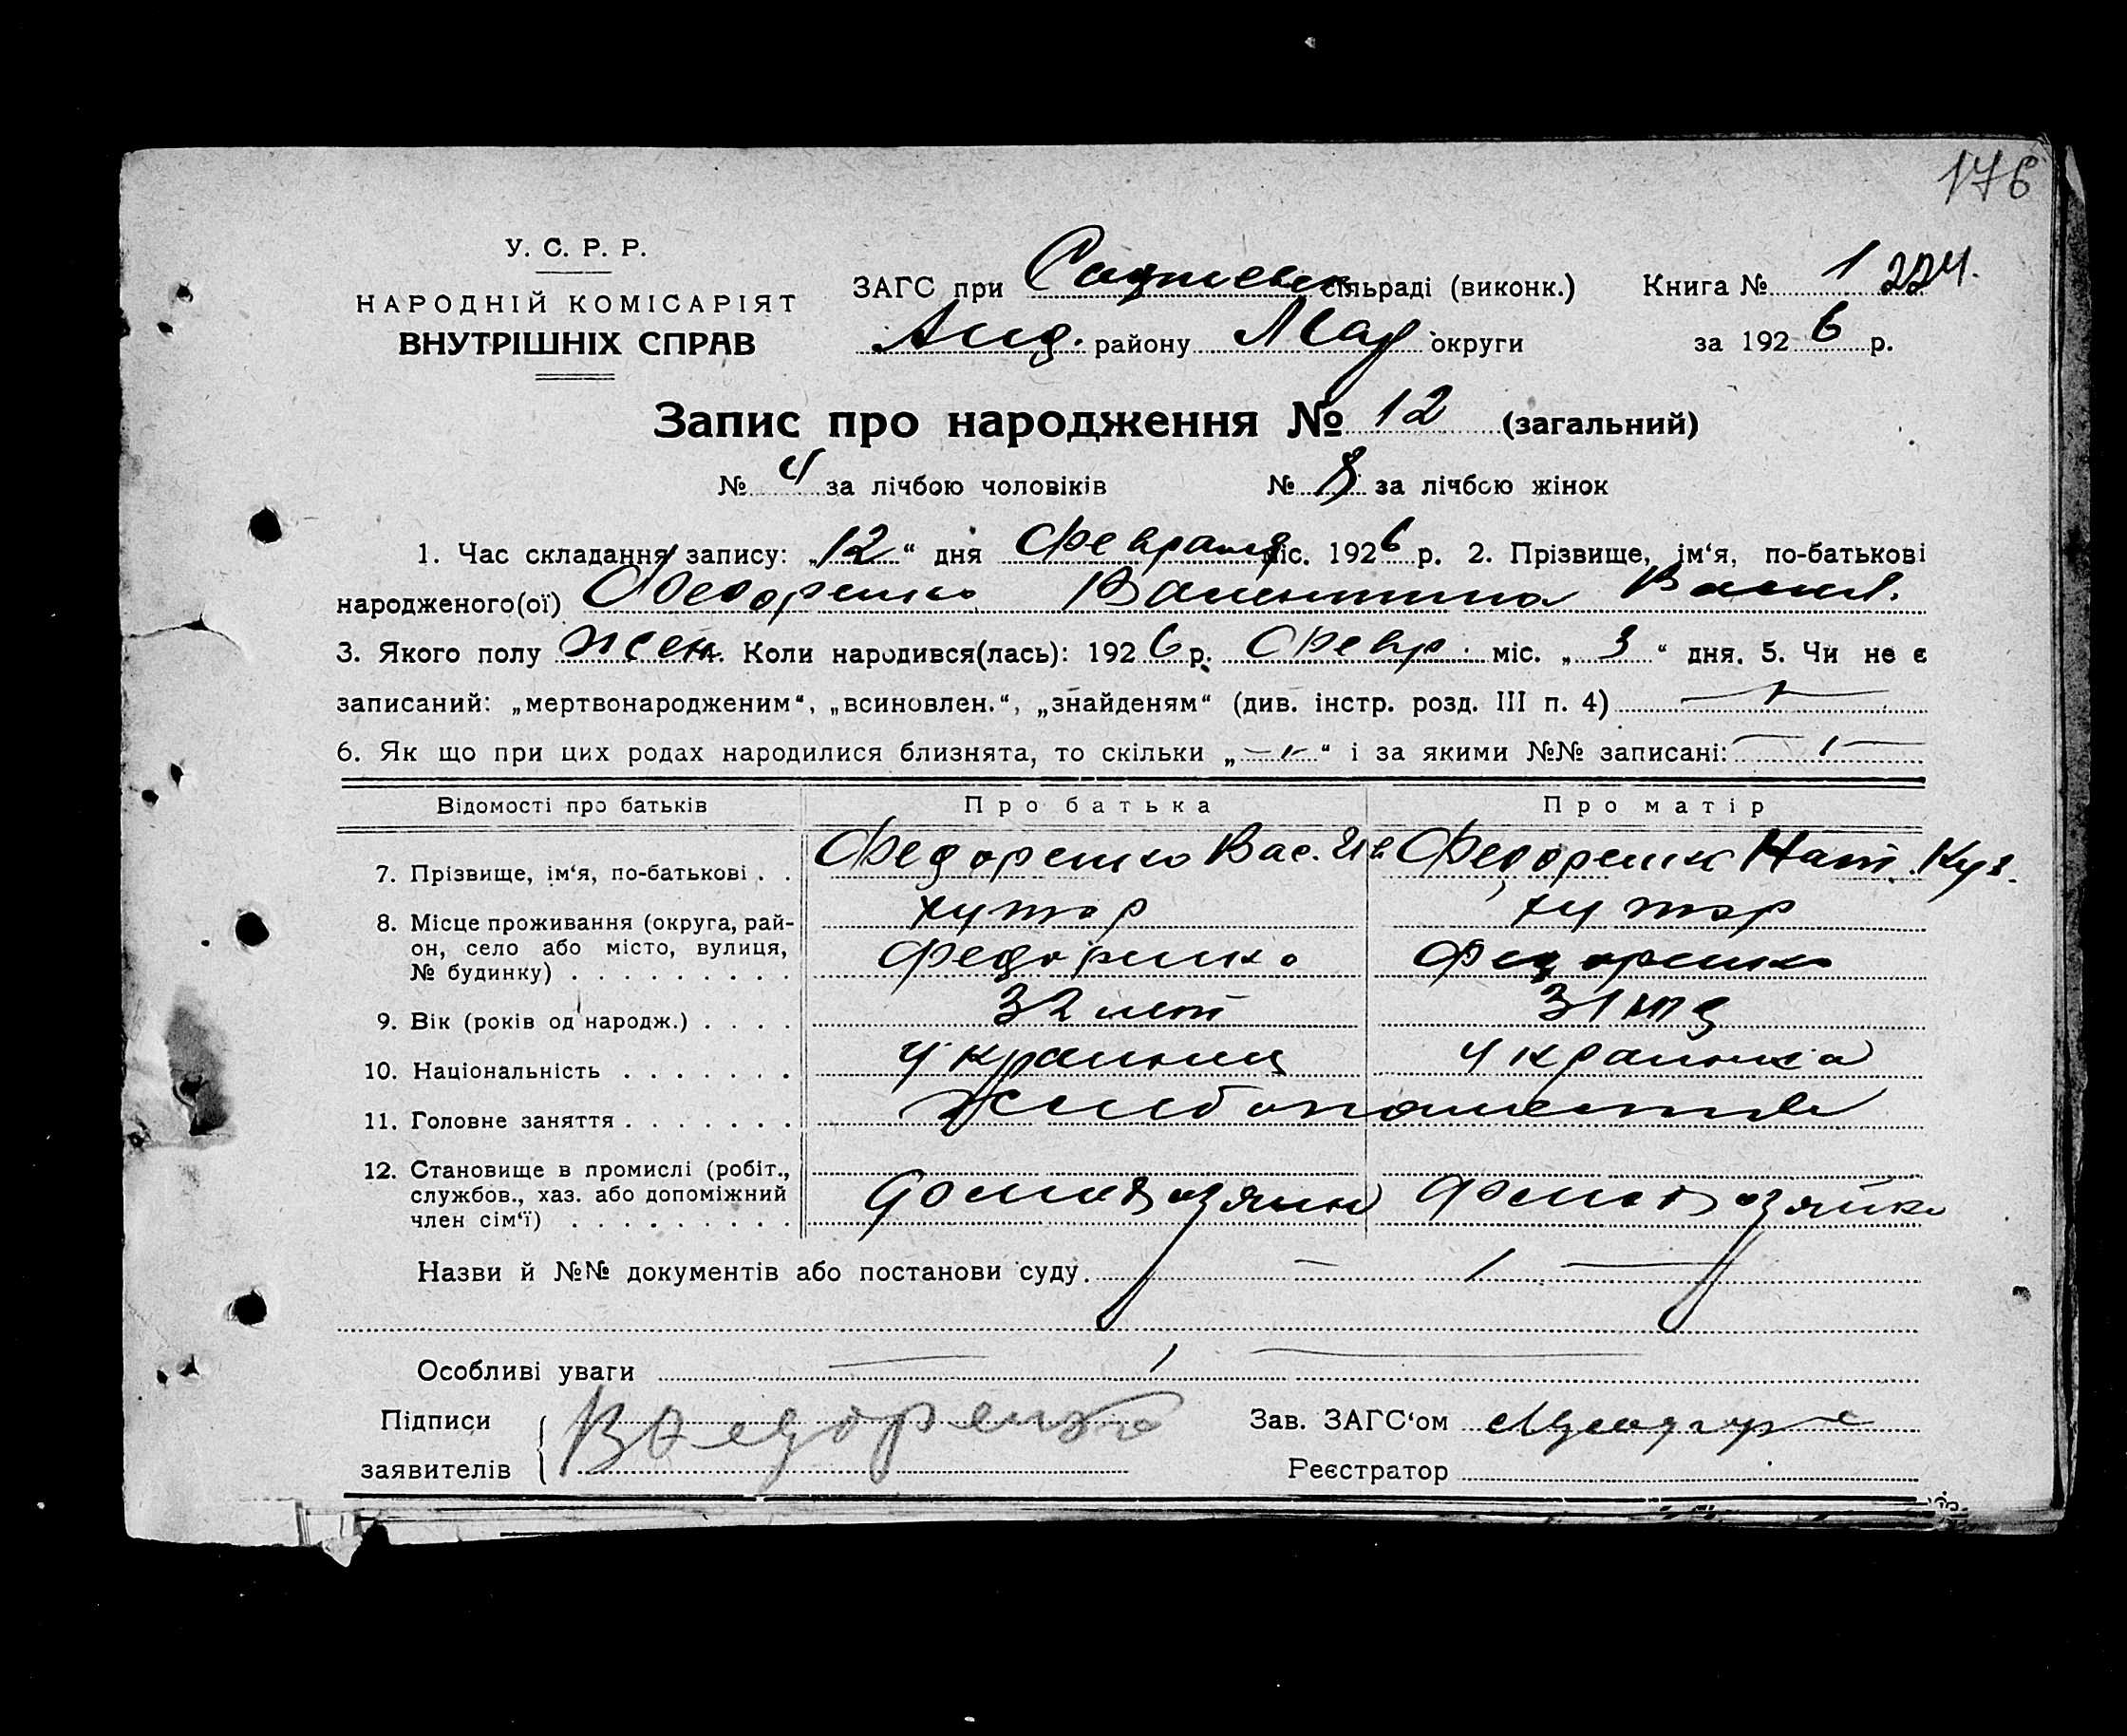 176
У. С. Р. Р.
НАРОДНІЙ КОМІСАРІЯТ
ВНУТРІШНІХ СПРАВ
ЗАГС при сільраді (виконк.) Книга № 1 224.
Анд. району Мар округи за 1926 р.
Запис про народження № 12 (загальний)
№ 4 за лічбою чоловіків № 8 за лічбою жінок
1. Час складання запису: „12“ дня Февраля міс. 1926 р. 2. Прізвище, ім‘я, по-батькові
народженого(ої) Федоренко Валентина Васил.
3. Якого полу жен. Коли народився(лась): 1926 р. Февр. міс. „3“ дня. 5. Чи не є
записаний: „мертвонародженим“, „всиновлен.“, „знайденям“ (див. інстр. розд. III п. 4)
6. Як що при цих родах народилися близнята, то скільки „ “ і за якими №№ записані:
Відомості про батьків Про батька Про матір
7. Прізвище, ім‘я, по-батькові . . Федоренко Вас. Ив Федоренко Нат. Куз.
8. Місце проживання (округа, рай- хутор хутор
он, село або місто, вулиця,
№ будинку) . . . . . . . . . Федоренко Федоренко
9. Вік (років од народж.) . . . . 32 лет 31
10. Національність . . . . . . . украинец украинка
11. Головне заняття . . . . . . . Хлебопашество
12. Становище в промислі (робіт.,
службов., хаз. або допоміжний
член сім‘ї) . . . . . . . . . домохозяин домохозяйка
Назви й №№ документів або постанови суду.
Особливі уваги
Підписи
заявителів
В Федоренко
Зав. ЗАГС‘ом
Реєстратор